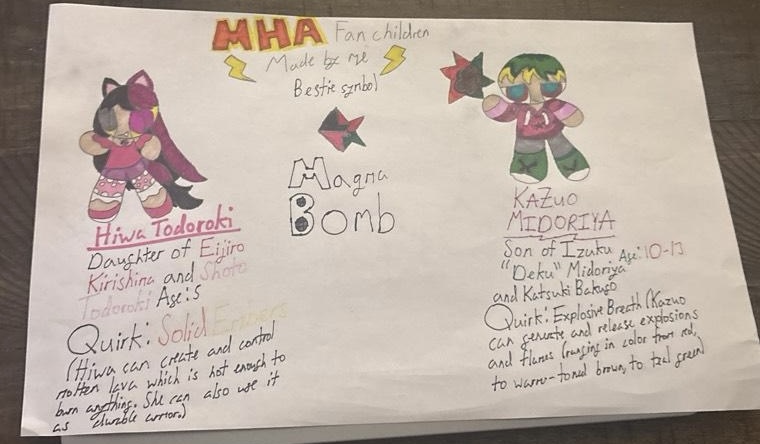 MHA Fan children
Made by me
Bestie symbol
Magma
Bomb
Hiwa Todoroki
Daughter of Eijiro
Kirishima and Shoto
Todoroki Age: 5
Quirk: Solid Embers
(Hiwa can create and control
molten lava which is hot enough to
burn anything. She can also use it
as durable armor.)
KAZUO
MIDORIYA
Son of Izuku Age: 10-13
"Deku" Midoriya
and Katsuki Bakugo
Quirk: Explosive Breath (Kazuo
can generate and release explosions
and flames (ranging in color from red,
to warm-toned brown, to teal green)